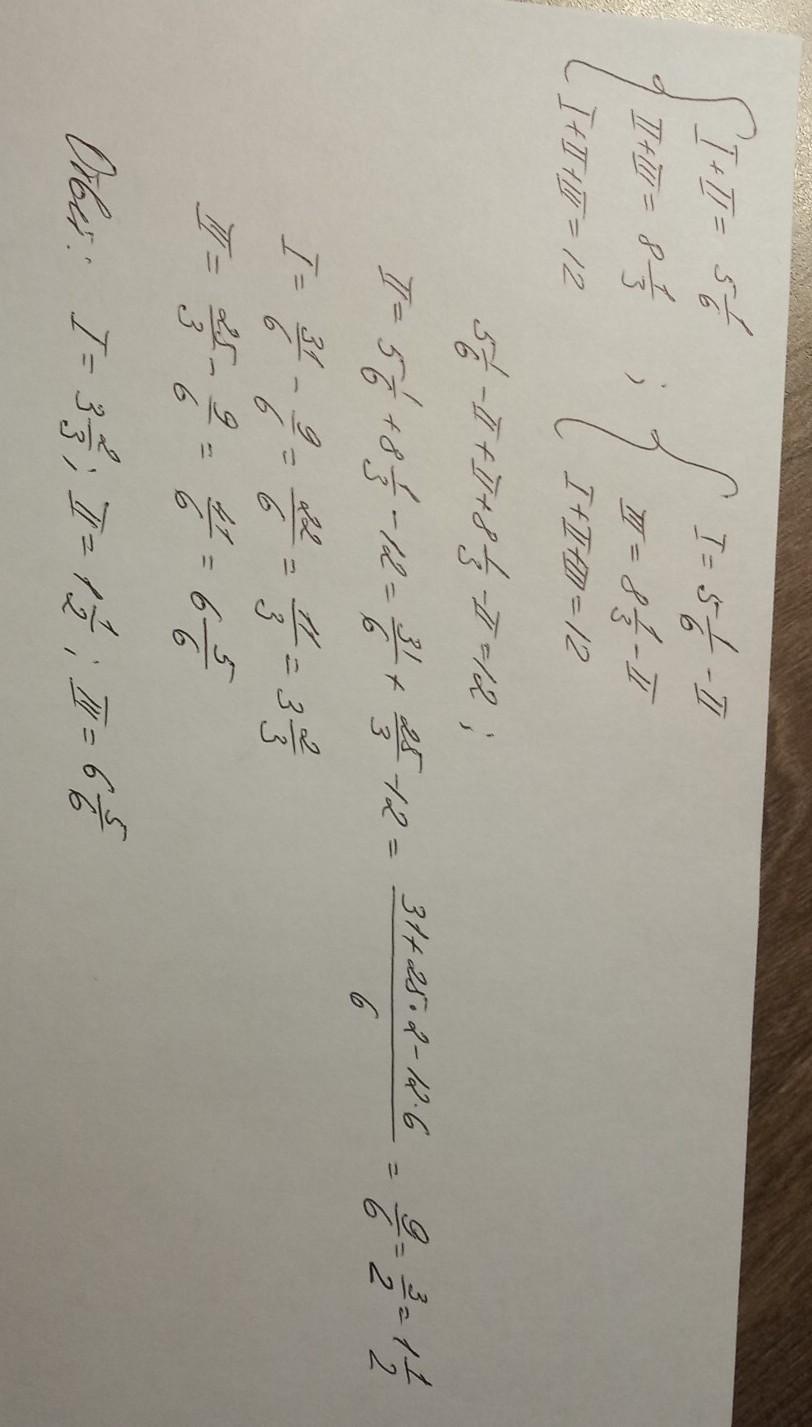 { I + II = 5 1/6 ; { I = 5 1/6 - II
II + III = 8 1/3 III = 8 1/3 - II
I + II + III = 12 I + II + III = 12
5 1/6 - II + II + 8 1/3 - II = 12 ;
II = 5 1/6 + 8 1/3 - 12 = 31/6 + 25/3 - 12 = (31 + 25 · 2 - 12 · 6)/6 = 9/6 = 3/2 = 1 1/2
I = 31/6 - 9/6 = 22/6 = 11/3 = 3 2/3
III = 25/3 - 9/6 = 41/6 = 6 5/6
Ответ: I = 3 2/3 ; II = 1 1/2 ; III = 6 5/6